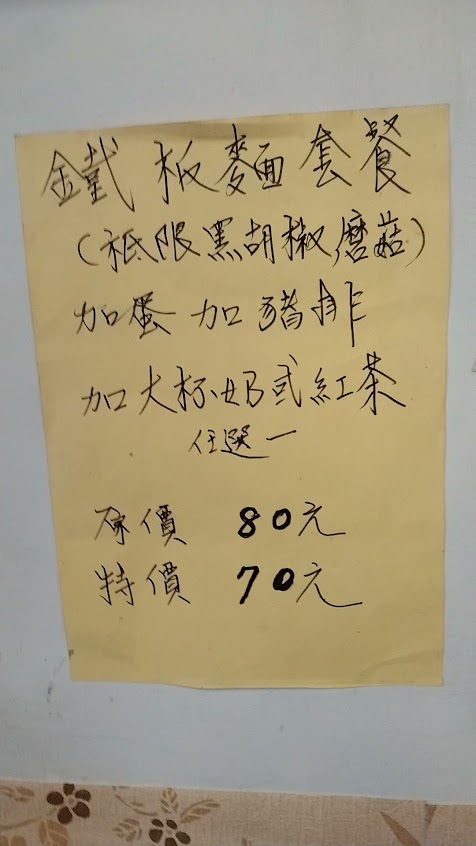 鐵板麵套餐
(祗限黑胡椒,磨菇)
加蛋加豬排
加大杯奶或紅茶
任選一
原價 80元
特價 70元